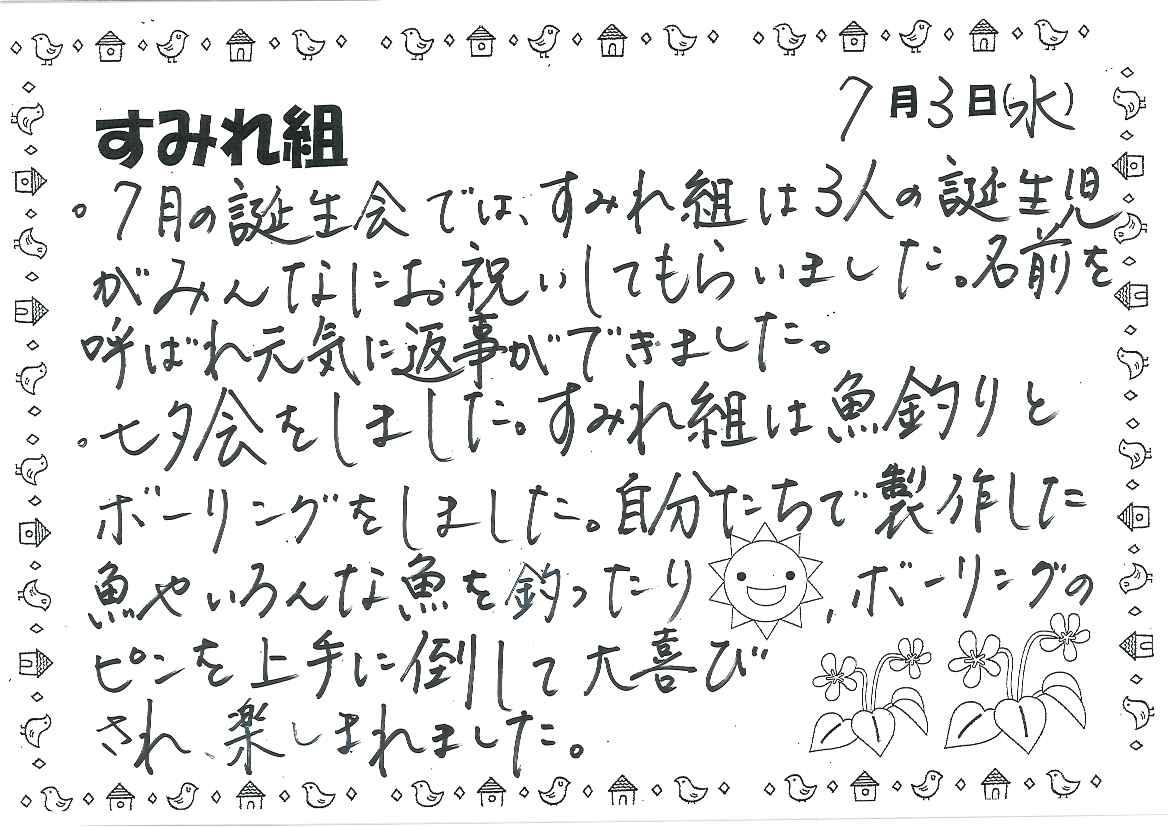 7月3日(水)
すみれ組
。7月の誕生会では、すみれ組は3人の誕生児
がみんなにお祝いしてもらいました。名前を
呼ばれ元気に返事ができました。
。七夕会をしました。すみれ組は魚釣りと
ボーリングをしました。自分たちで製作した
魚やいろんな魚を釣ったり、ボーリングの
ピンを上手に倒して大喜び
され、楽しまれました。